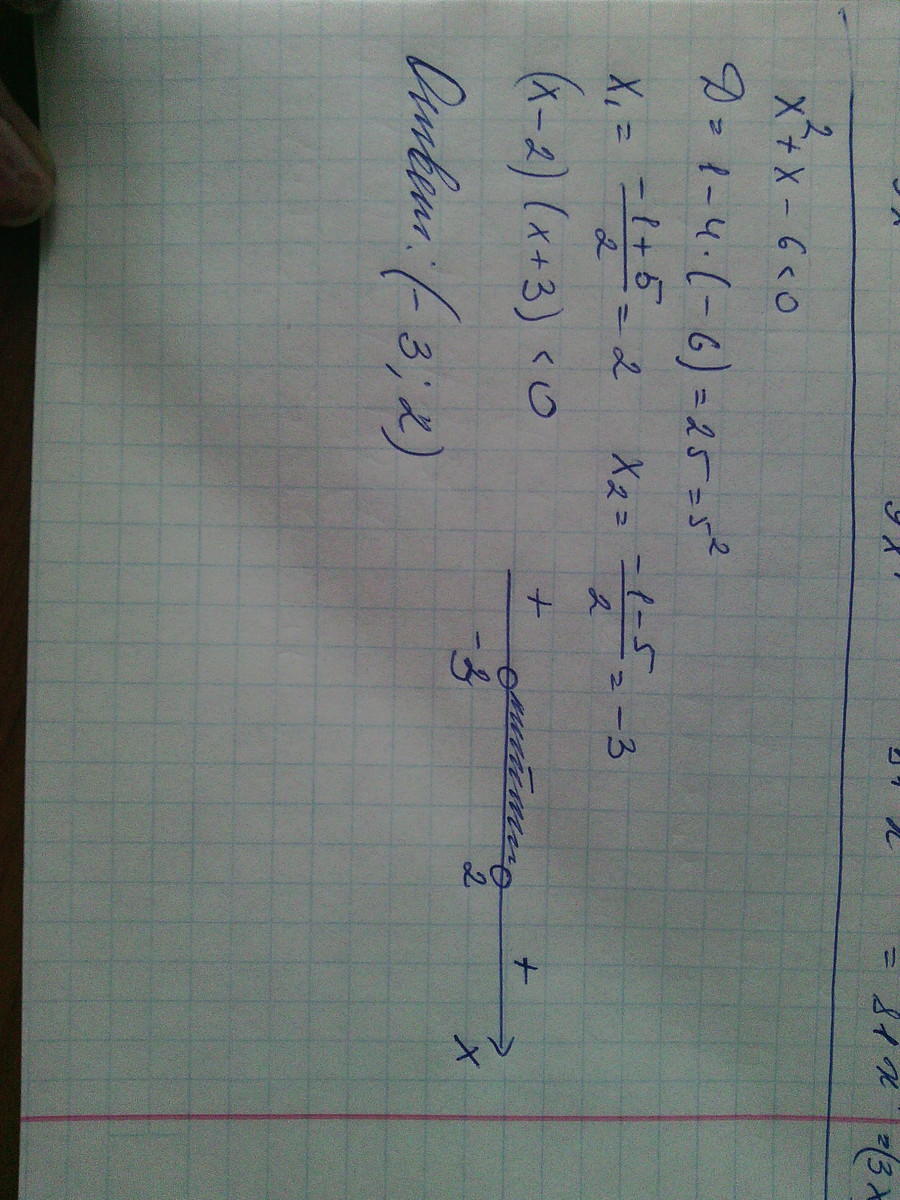 x² + x - 6 < 0
D = 1 - 4 · (-6) = 25 = 5²
x₁ = (-1+5)/2 = 2 x₂ = (-1-5)/2 = -3
(x-2)(x+3) < 0
+ - +
-3 2 x
Ответ: (-3; 2)